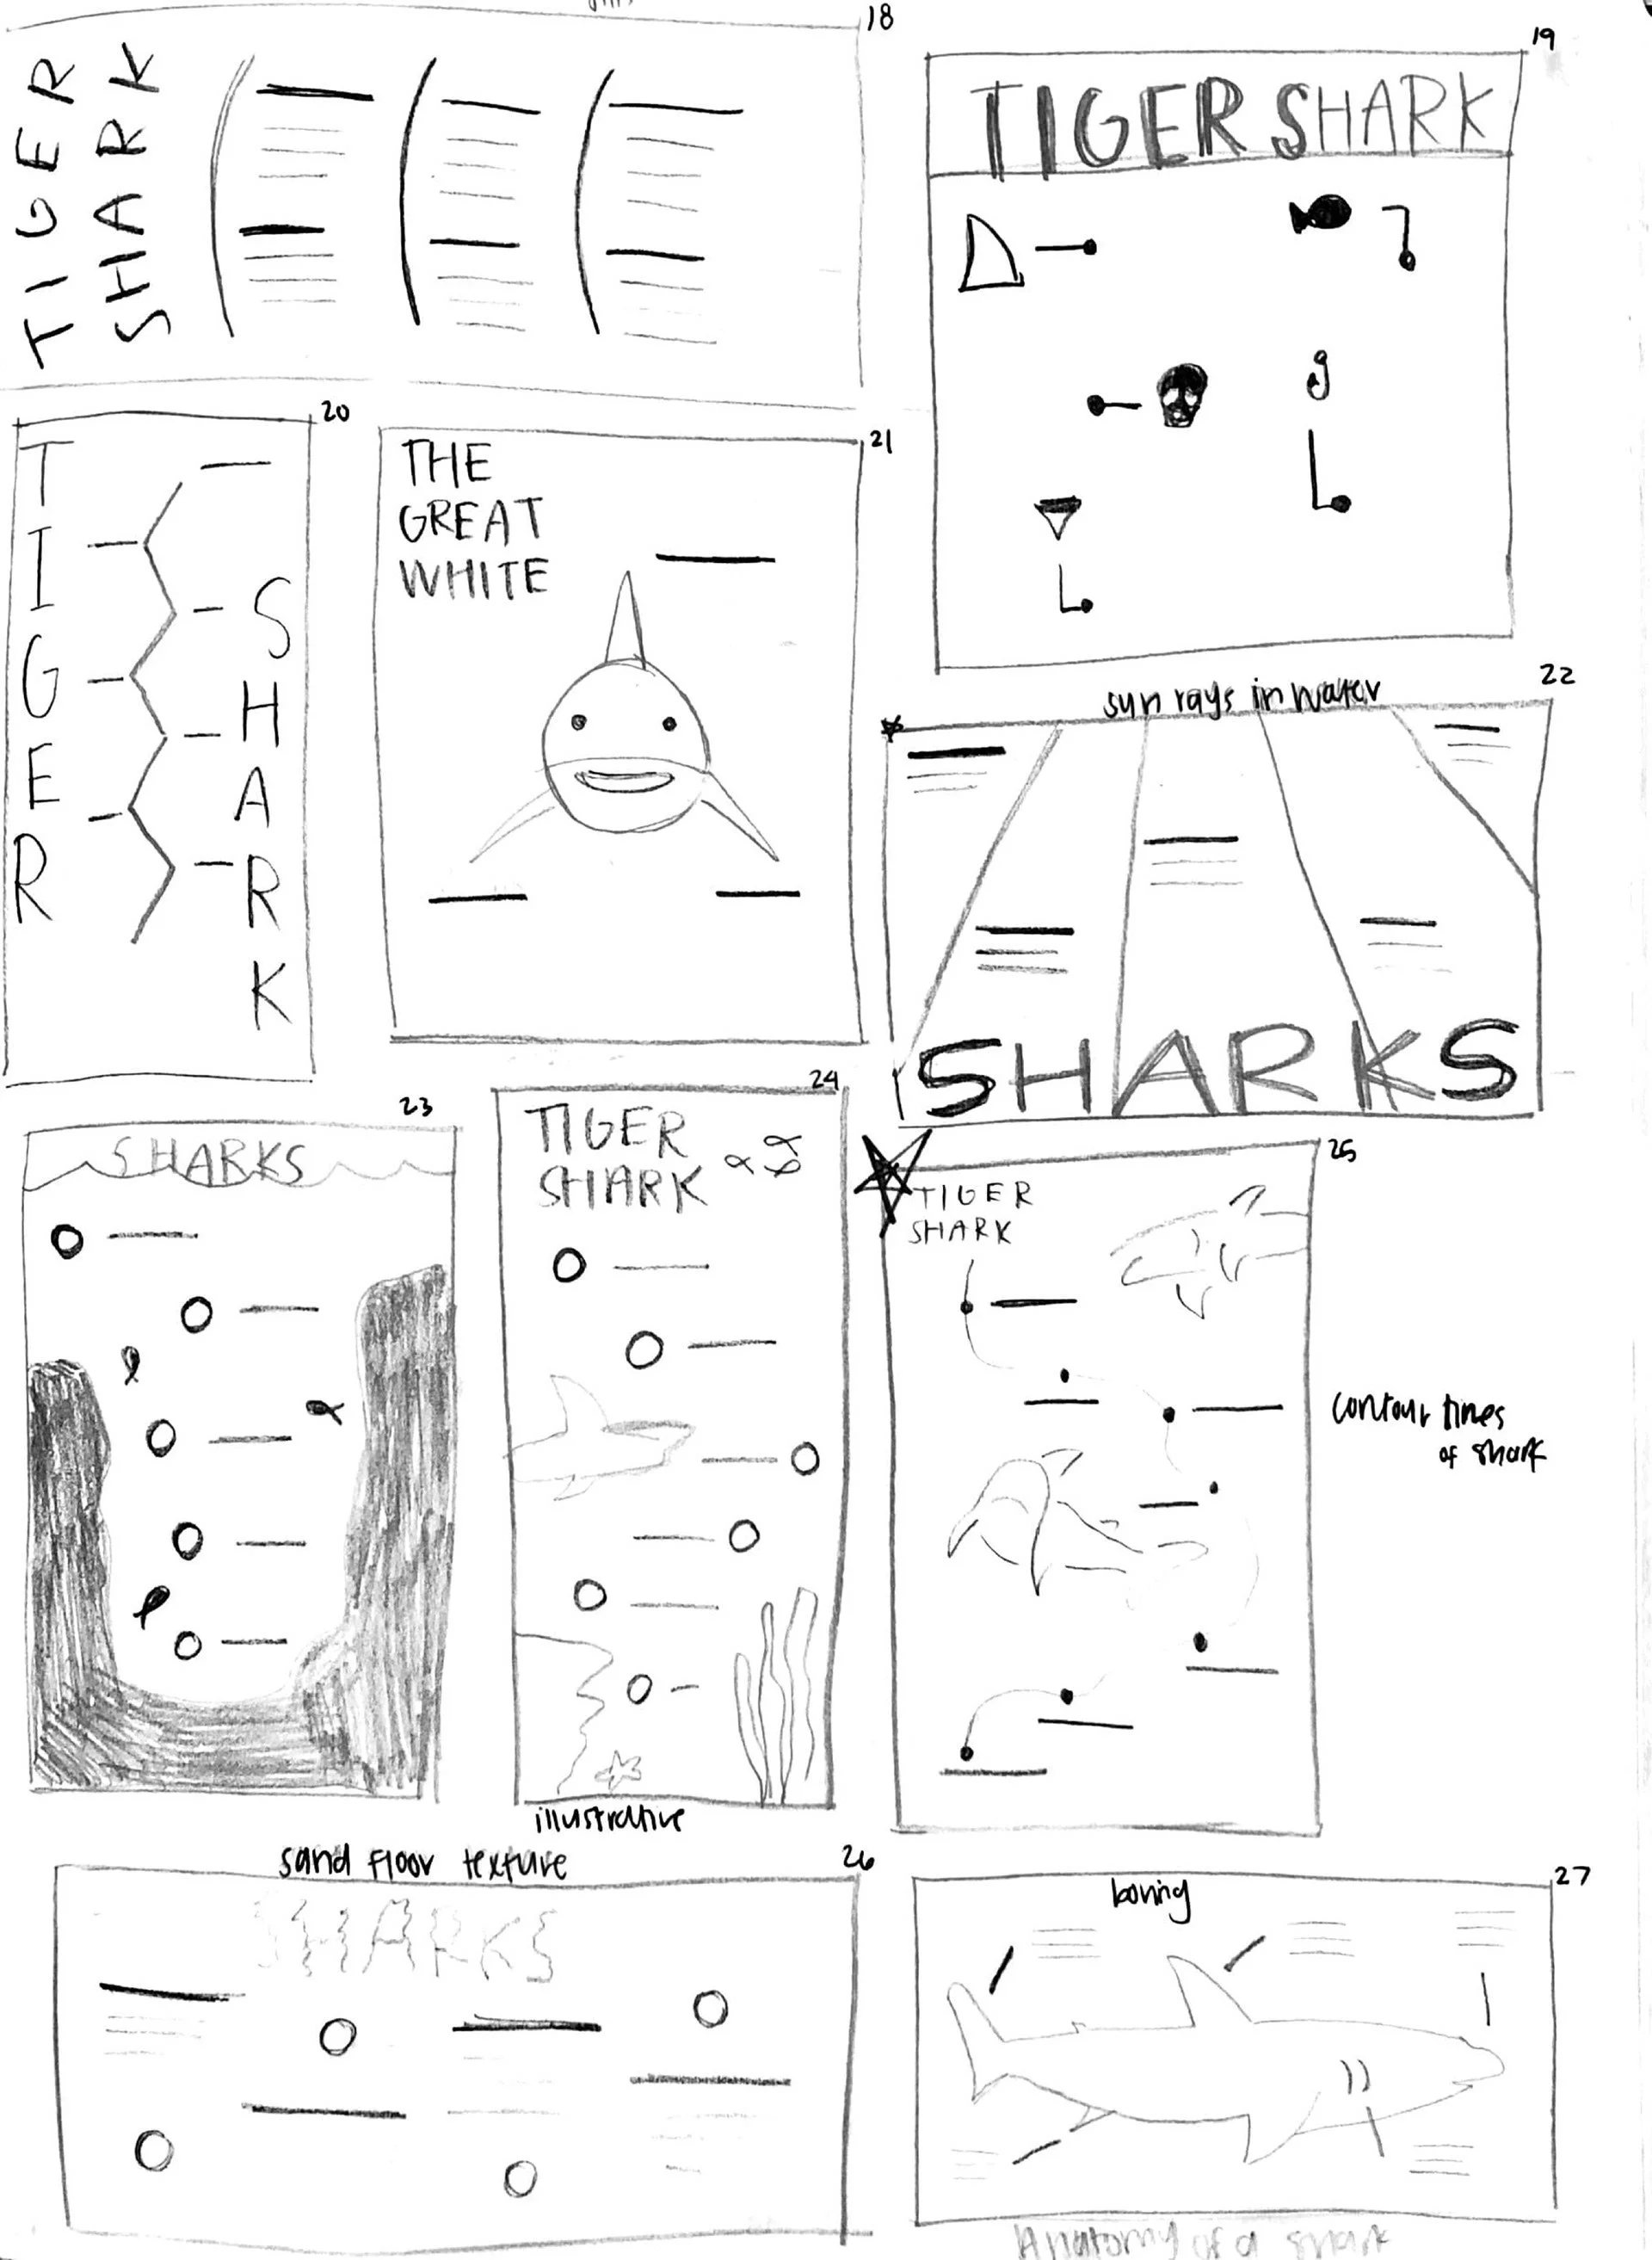 18
TIGER
SHARK
19
TIGER SHARK
20
TIGER
SHARK
21
THE
GREAT
WHITE
22
sun rays in water
SHARKS
23
SHARKS
24
TIGER
SHARK
illustrative
25
TIGER
SHARK
contour lines
of shark
26
sand floor texture
SHARKS
27
boring
Anatomy of a shark